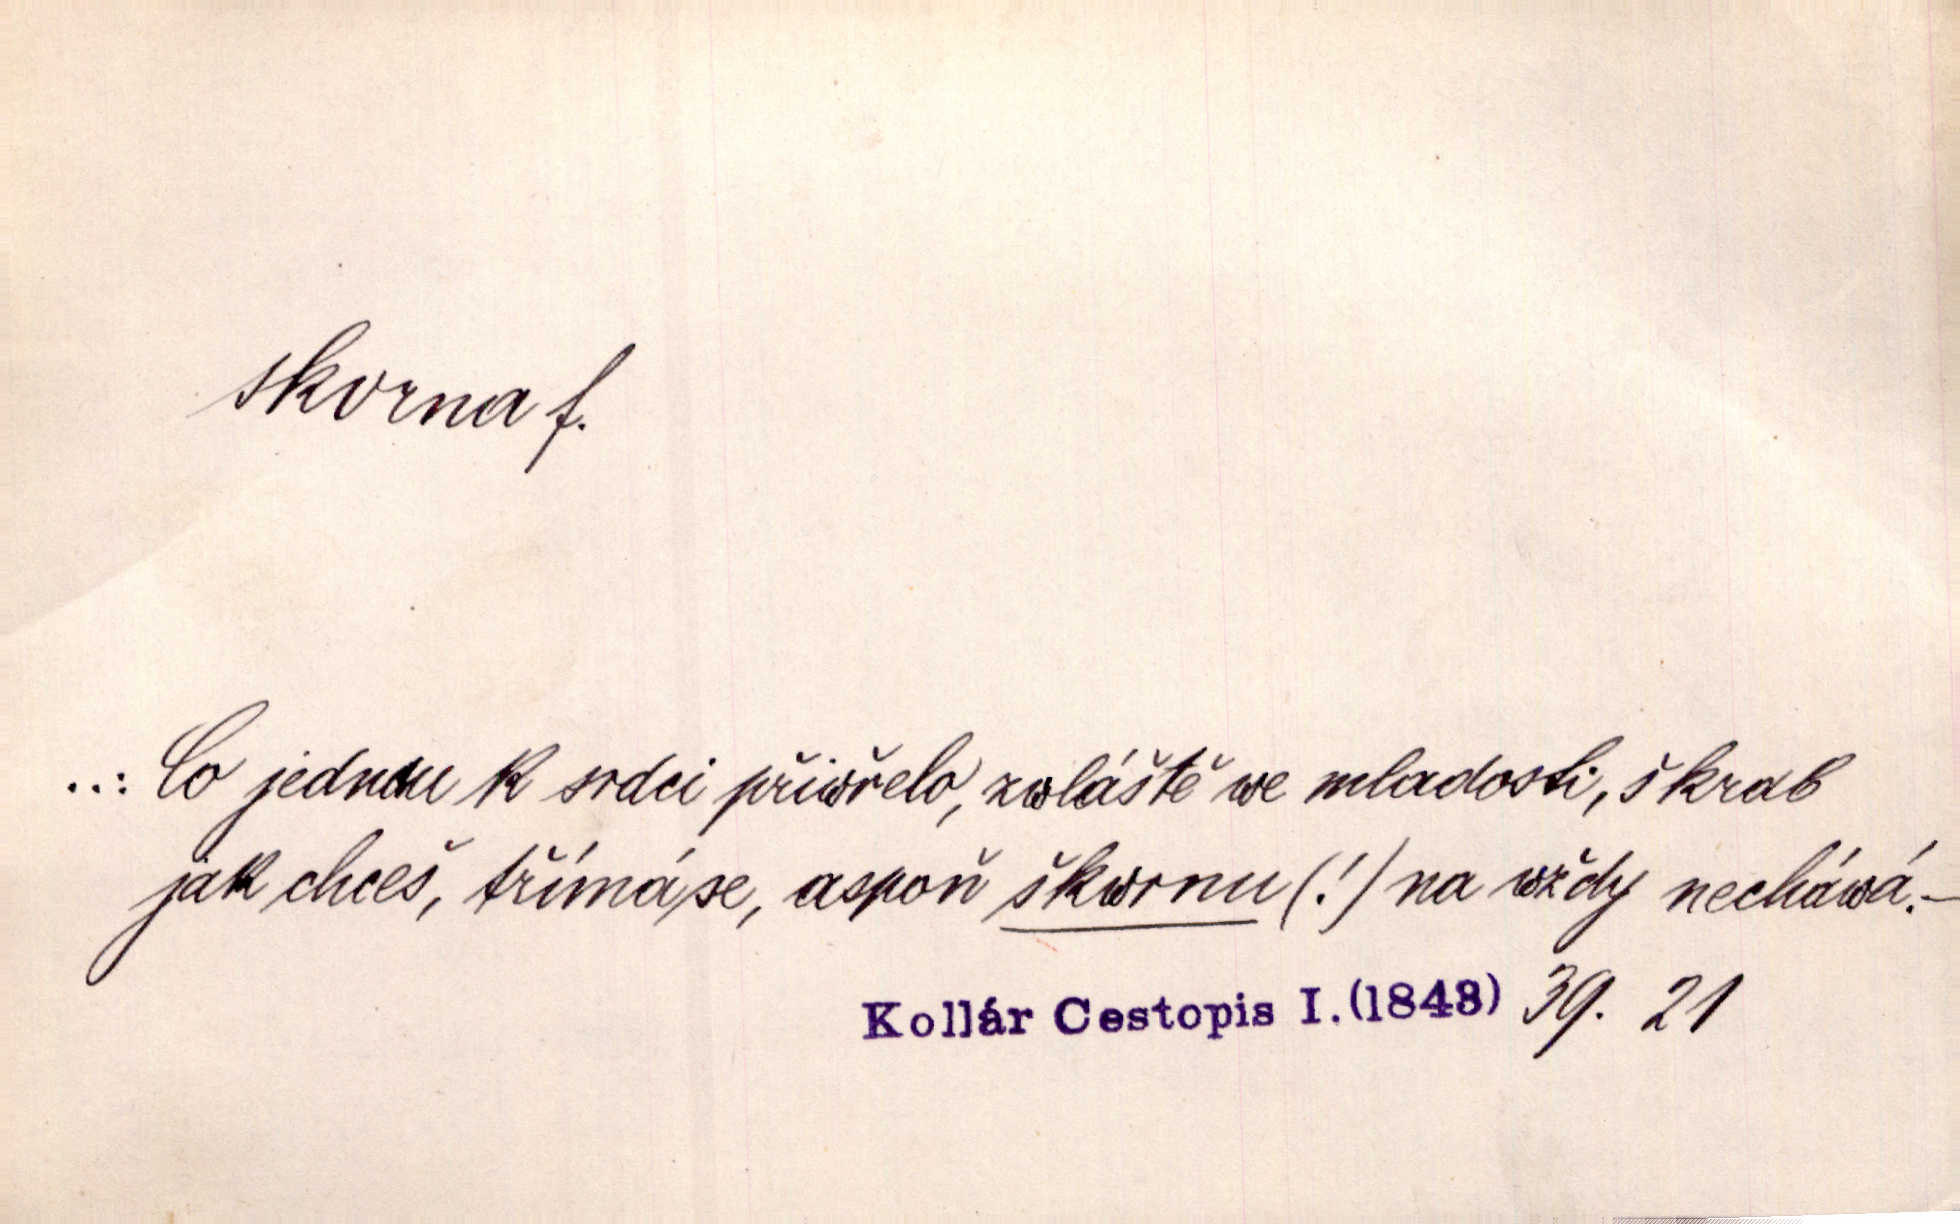 skvrna f.
..: Co jednou k srdci přiwřelo, zwláště we mladosti, škrab
jak chceš, třímá se, aspoň škwrnu (!) na wždy necháwá.—
Kollár Cestopis I. (1843) 39. 21